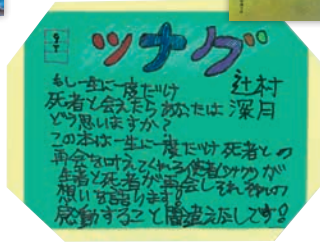 ツナグ
辻村
深月
もし一生に一度だけ
死者と会えたらあなたは
どう思いますか?
この本は一生に一度だけ死者との
再会を叶えてくれる使者(ツナグ)が
生者と死者が再会しそれぞれの
想いを語ります。
感動すること間違えなしです!